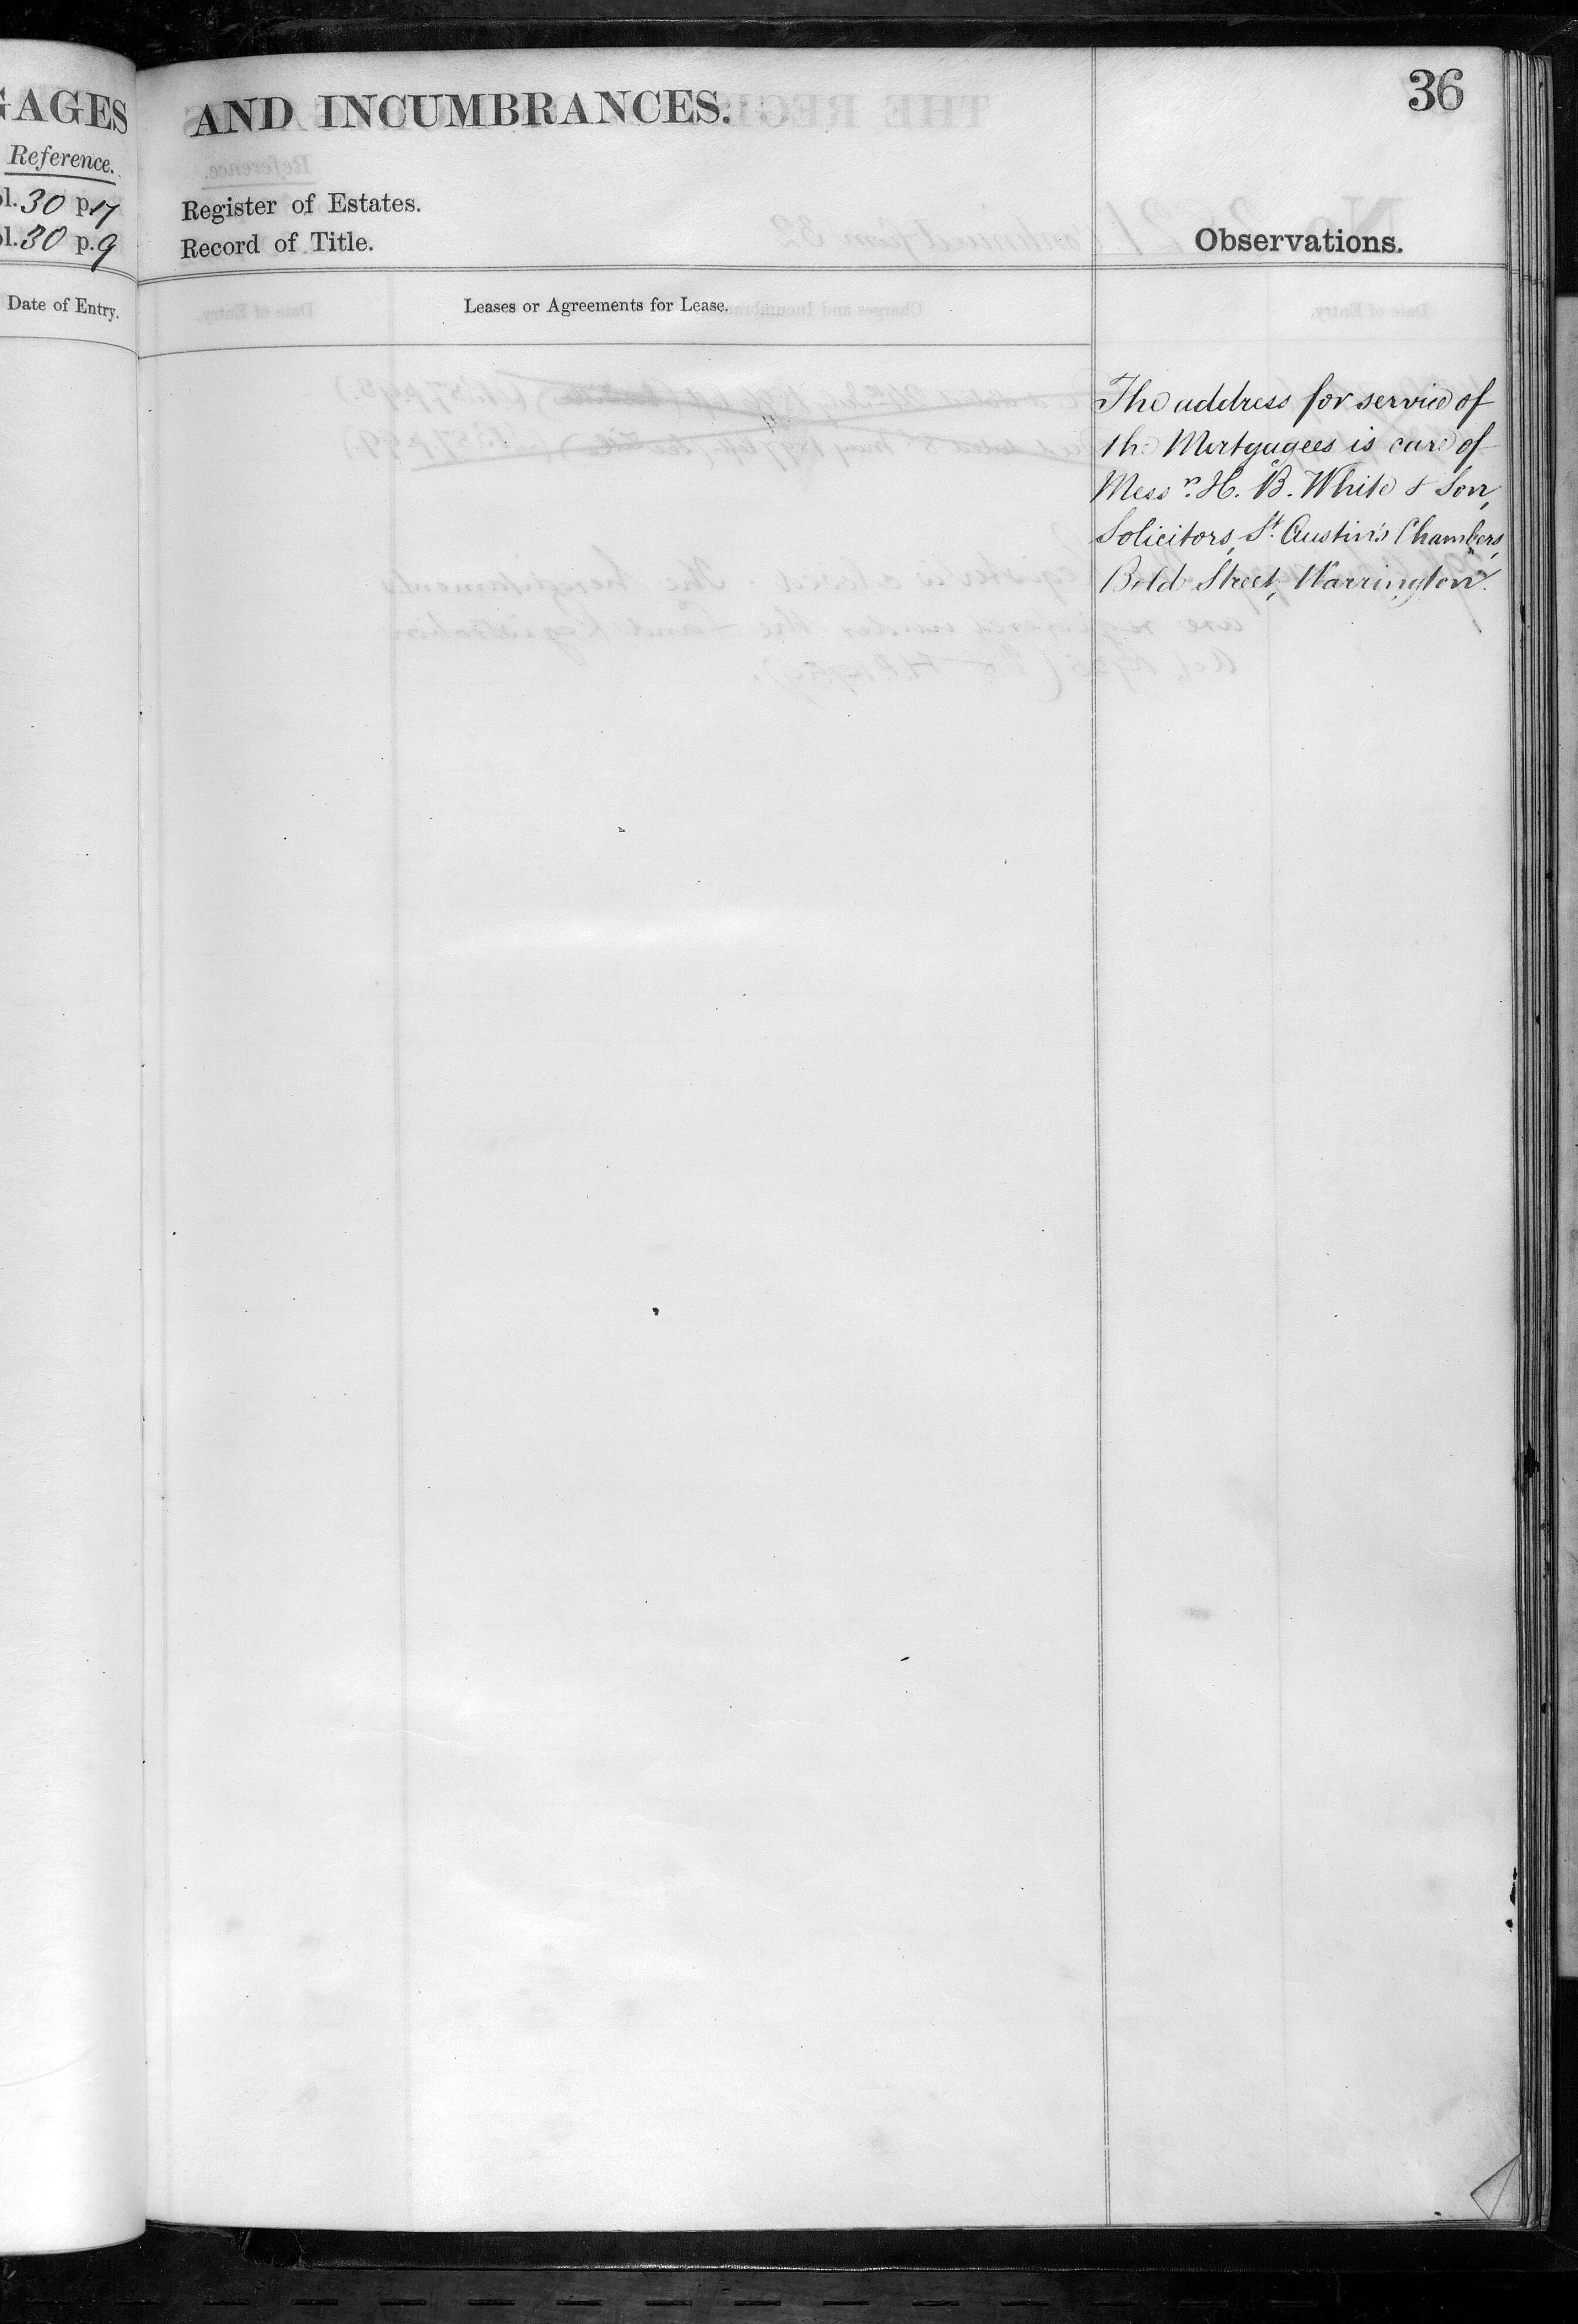 GAGES
Reference.
ol. 30 p. 17
ol. 30 p. 9
Date of Entry.
AND INCUMBRANCES.
36
Register of Estates.
Record of Title.
Observations.
Leases or Agreements for Lease.
The address for service of
the Mortgagees is care of
Messrs. H. B. White & Son,
Solicitors, St. Austin's Chambers,
Bold Street, Warrington.